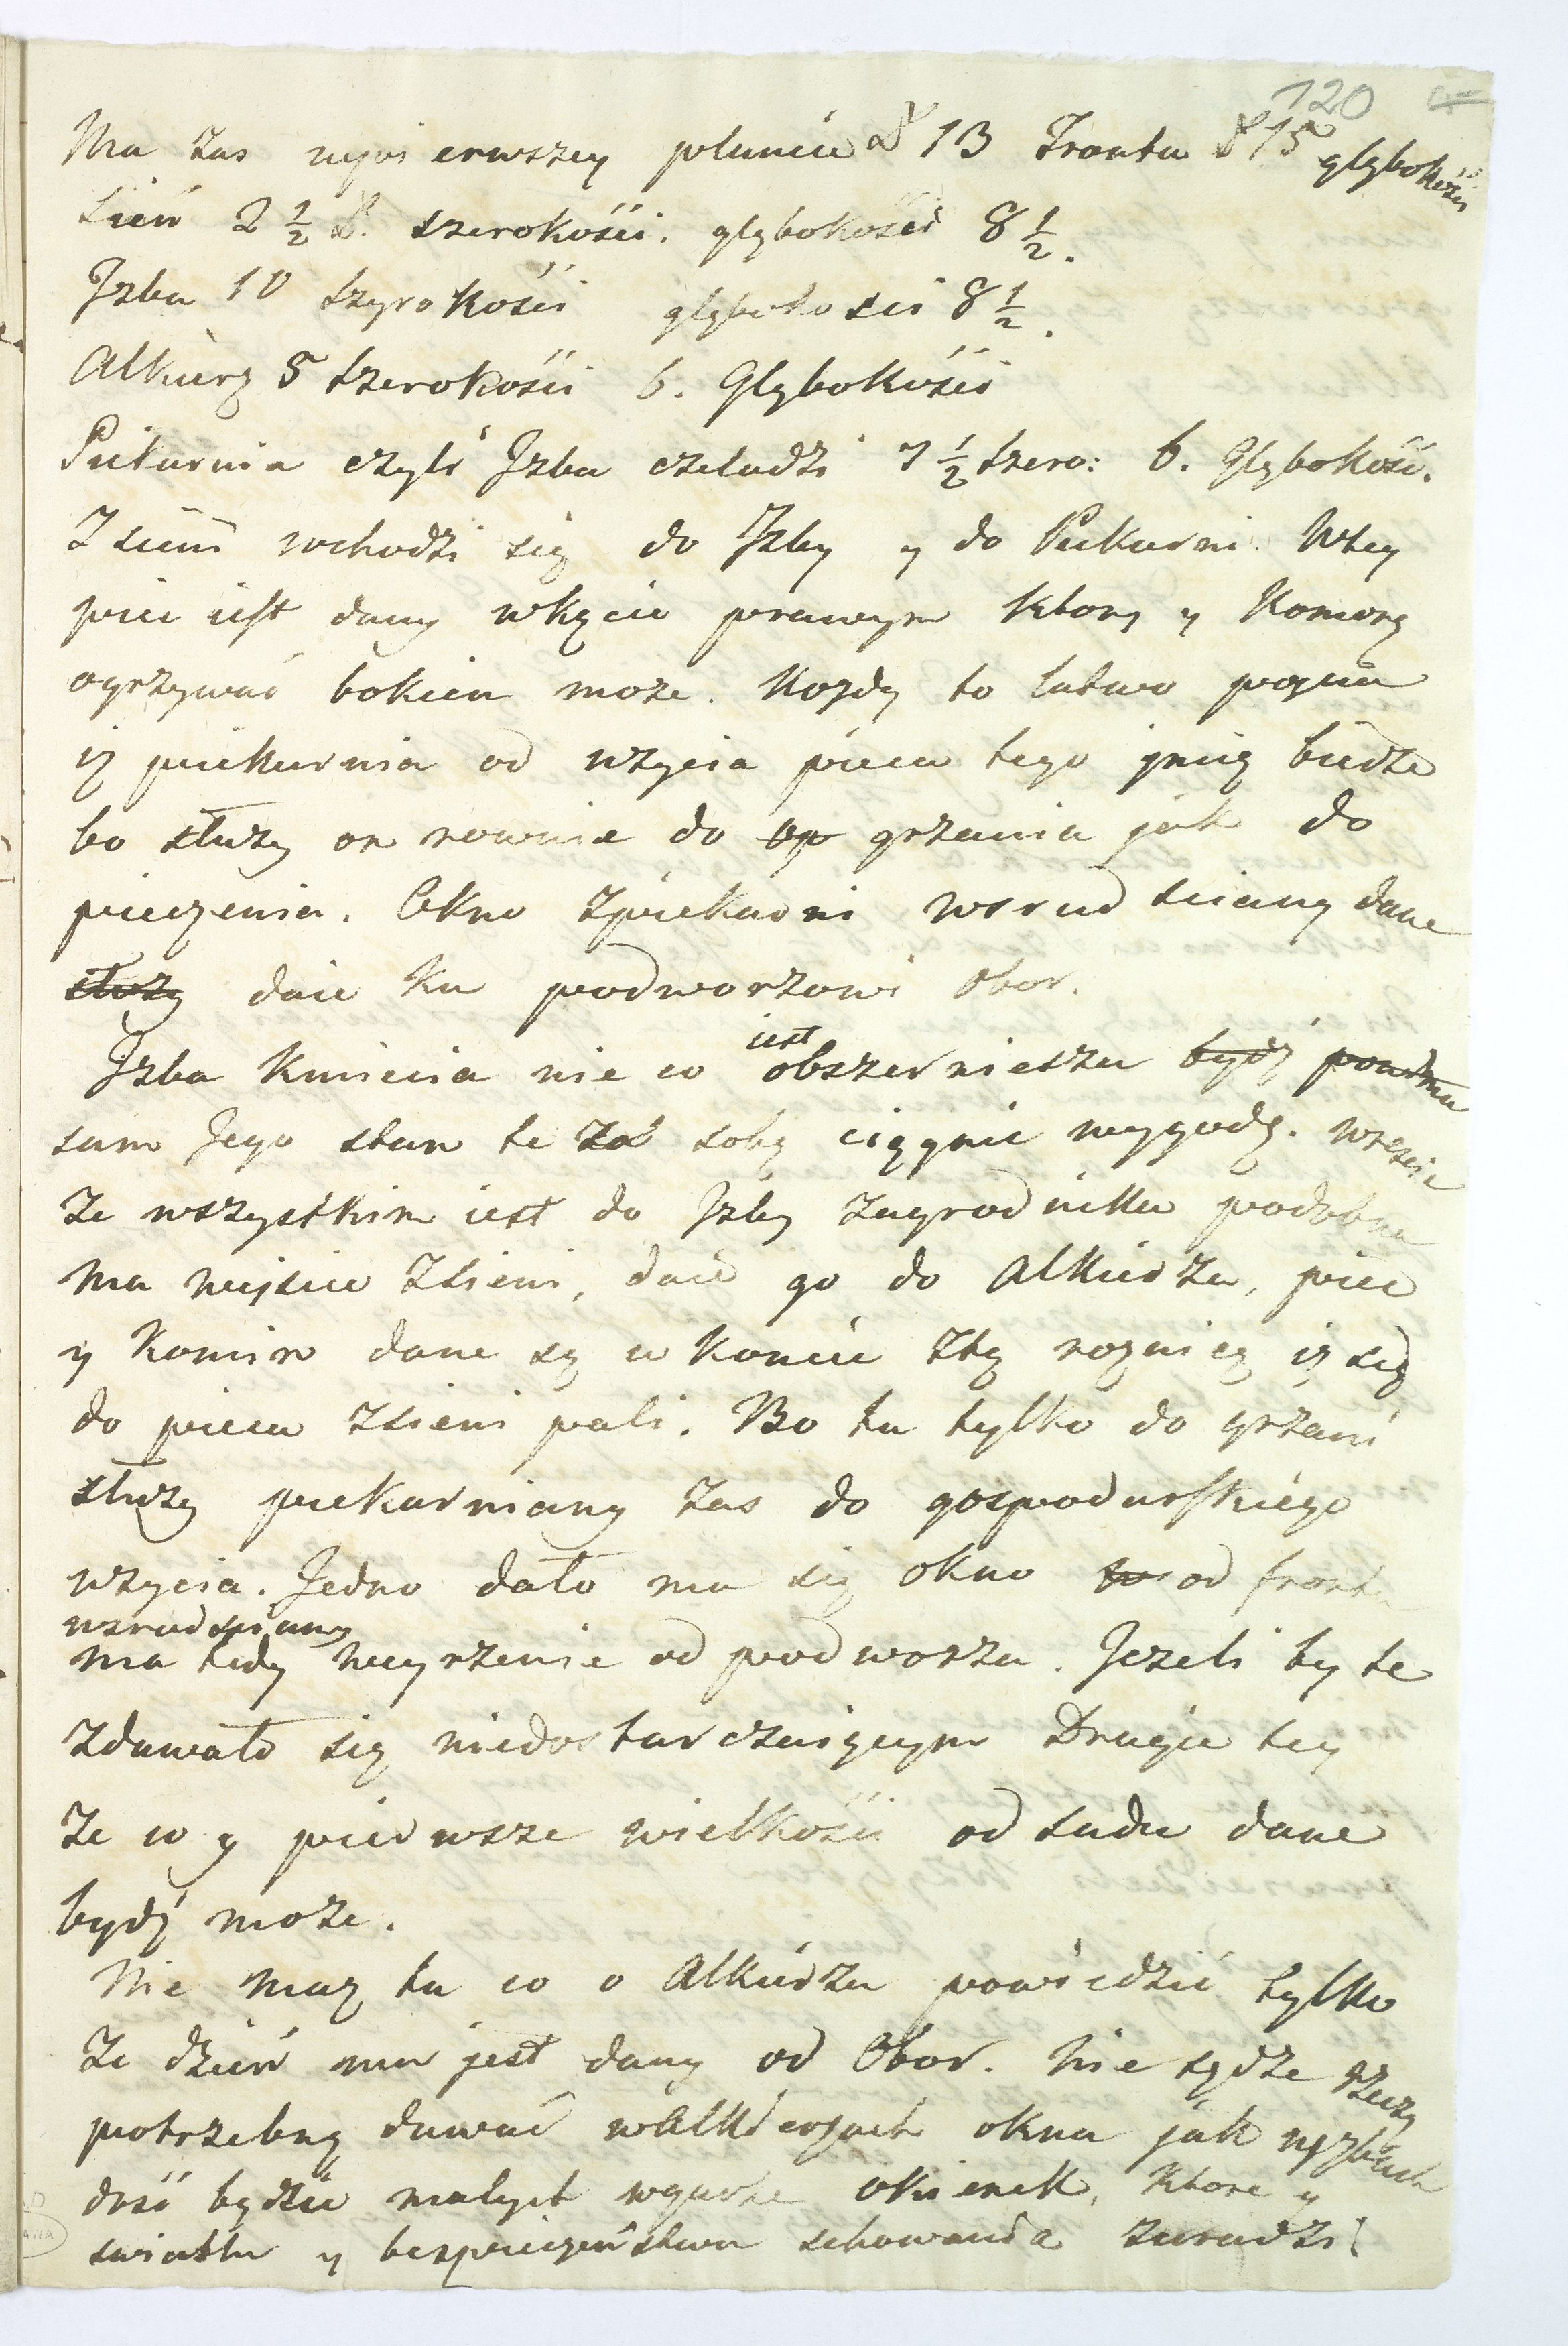 120
Ma zas naypierwszey połaci ł 13 Frontu ł 15 głębokości
Sień 2 1/2 ł. szerokości. głębokości 8 1/2.
Jzba 10 szyrokości głębokosci 8 1/2.
Alkierz 5 szerokości 6. Głębokości
Piekarnia czyli Jzba czeladzi 7 1/2 szero: 6. Głębokoś.
Z sieni wchodzi się do Jzby y do Piekarni. Wtey
piec iest dany wkącie prawym ktory y Komorę
ogrzywać bokiem moze. Kozdy to łatwo poymie
iz piekarnia od uzycia pieca tego jmię bierze
bo służy on rownie do op grzania jak do
pieczenia. Okno zpiekarni wsrud sciany dane
służy daie ku podworzowi Obor.
Jzba Kmiecia nie co iest obszernieszu bydź powinna
sam Jego stan te za sobą ciągnie wygodę. wreście
ze wszystkim iest do Jzby zagrodnika podobna
ma wejscie zsieni, daie go do Alkierza, piec
y Komin dane są w koncie ztą roznicą iz się
do pieca zsieni pali. Bo tu tylko do grzani
służy piekarniany zas do gospodarskiego
uzycia. Jedno dało mu się okno od frontu
wsrud sciany
ma tedy weyrzenie od podworza. Jezeli by te
zdawało się niedostarczaiącym Drugie tey
ze co y pierwsze wielkości od sadu dane
bydź moze.
Nie mam tu co o Alkierzu powiedzić tylko
ze dzień mu jest dany od Obor. Nie sądze rzeczą
potrzebną dawać wAlkierzach okna jak wjzbach
dość będzie małych wgurze okienek, ktore y
swiatłu y bezpieczeństwu schowania zaradzi